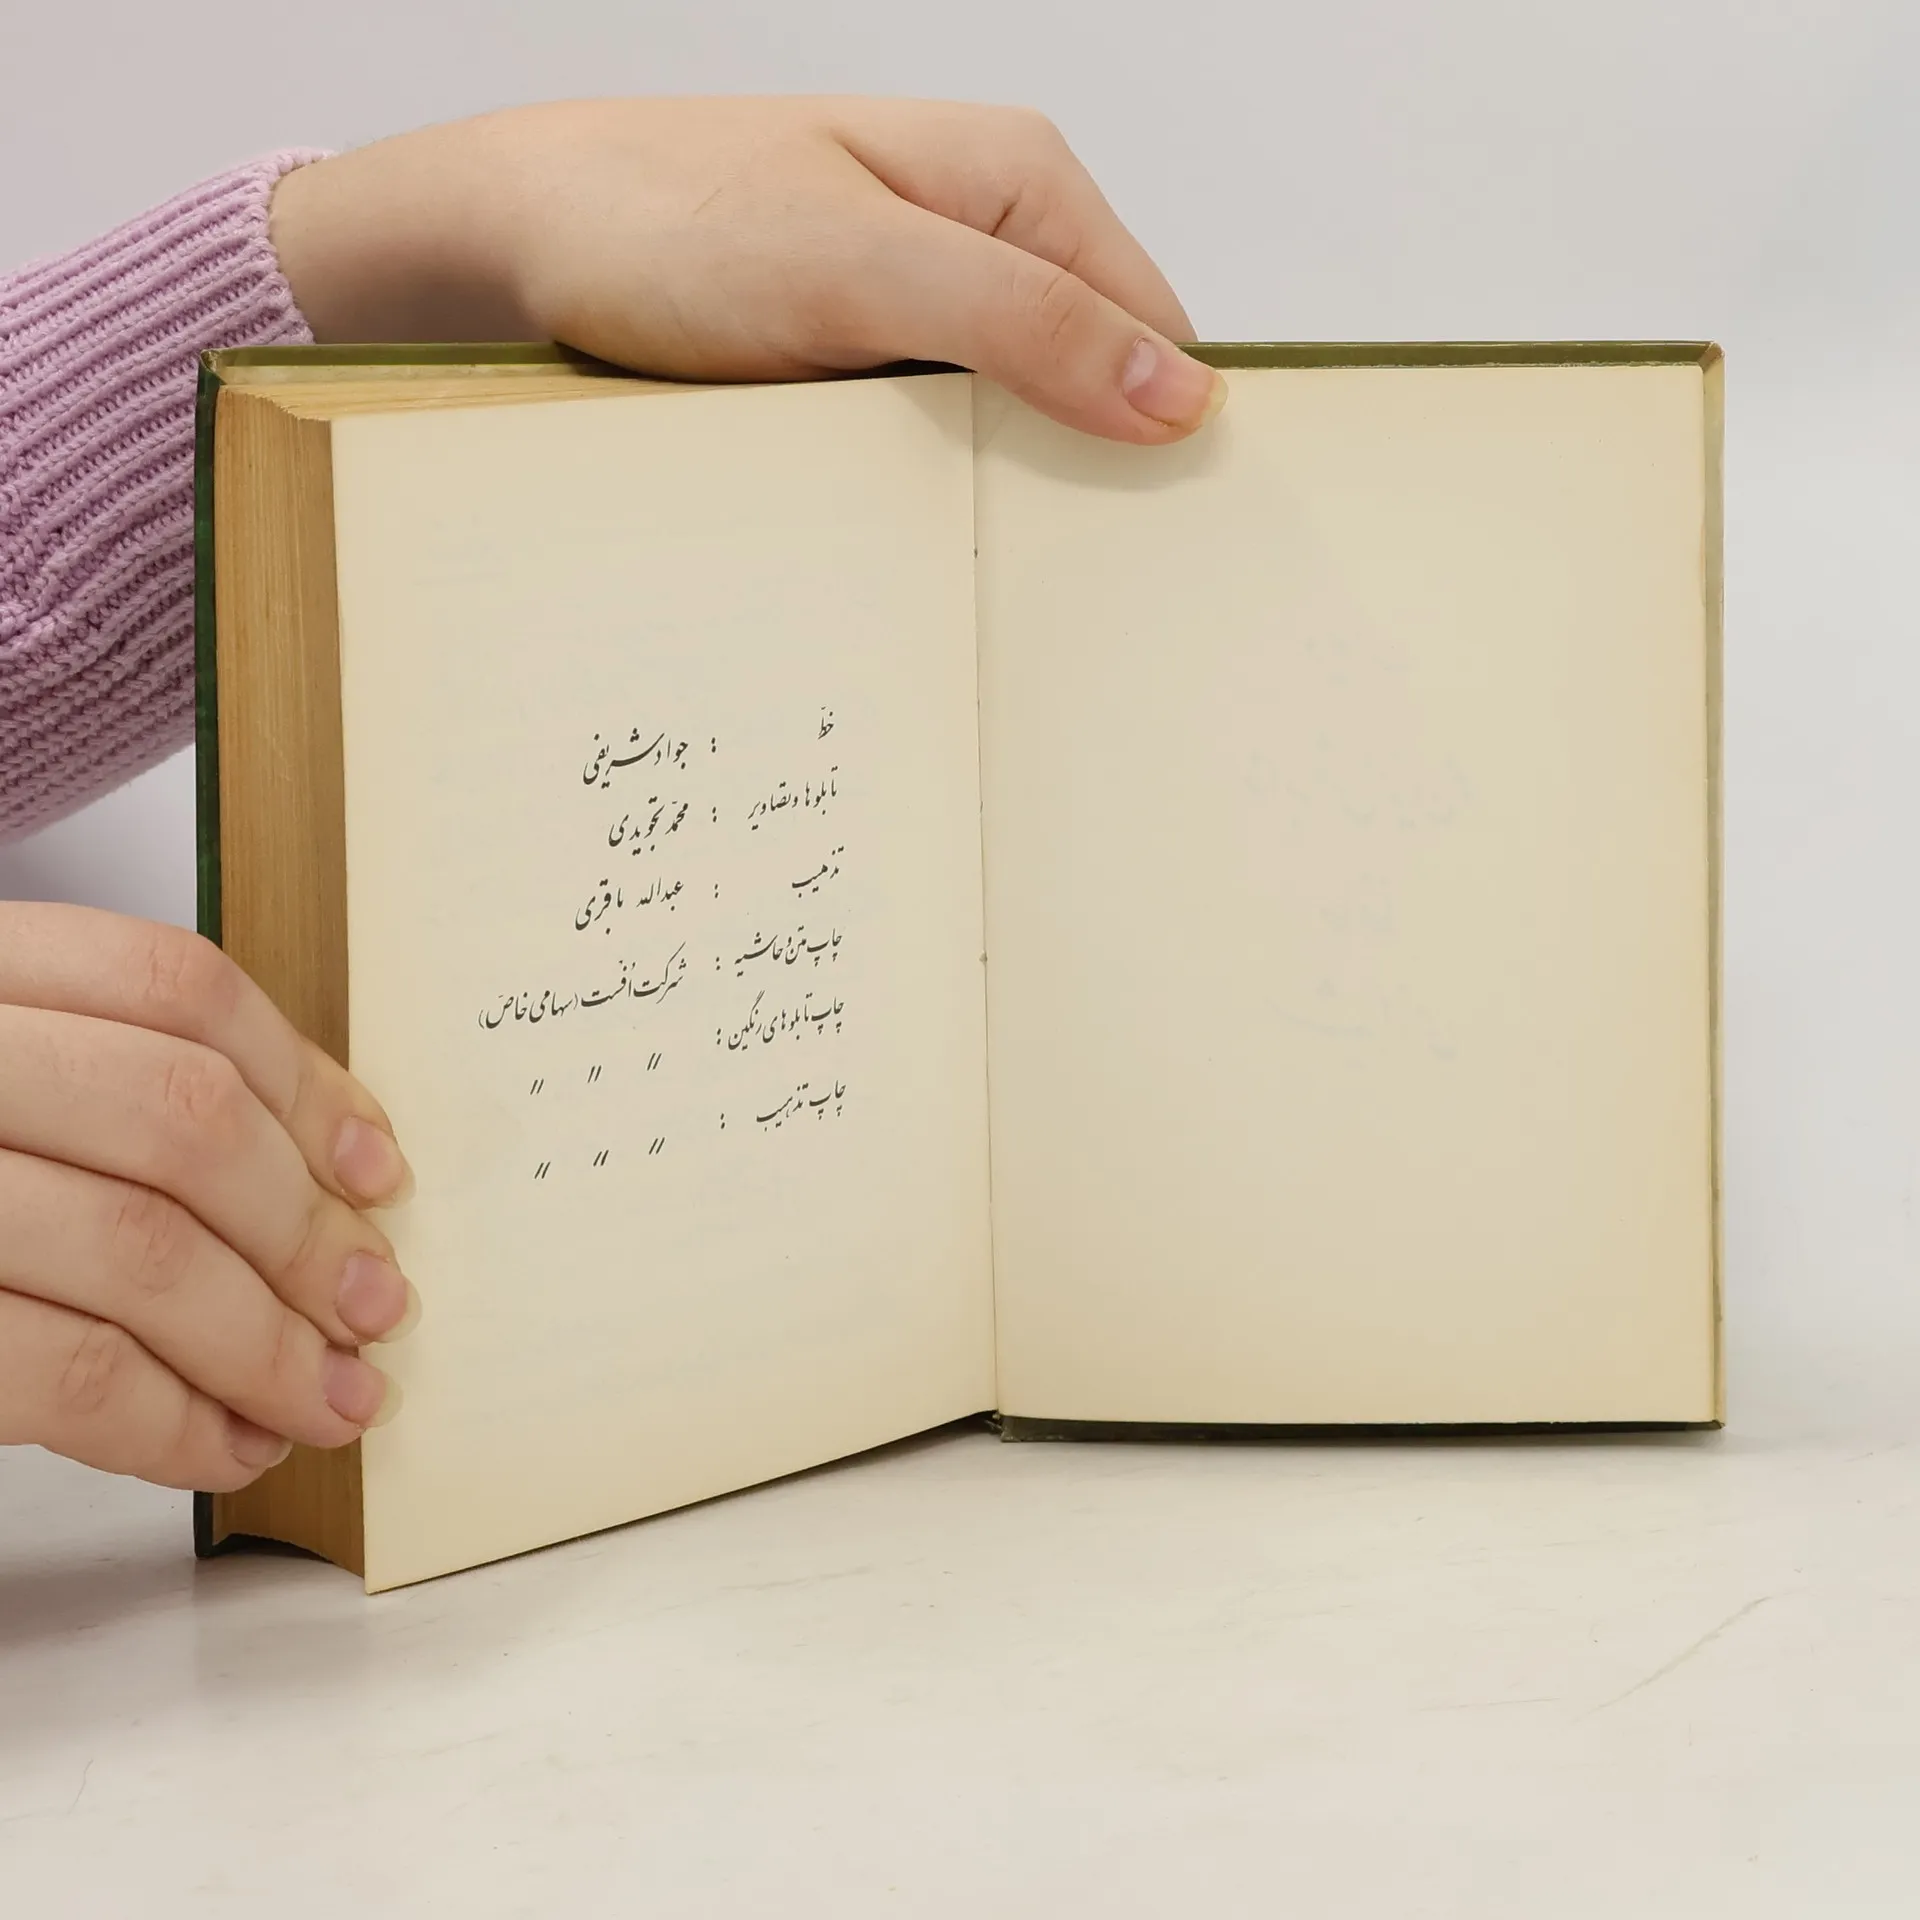 خطّ : جواد شریفی
تابلوها و تصاویر : محمّد تجویدی
تذهیب : عبدالله باقری
چاپ متن و حاشیه : شرکت اُفست (سهامی خاصّ)
چاپ تابلوهای رنگین : 〃 〃 〃
چاپ تذهیب : 〃 〃 〃